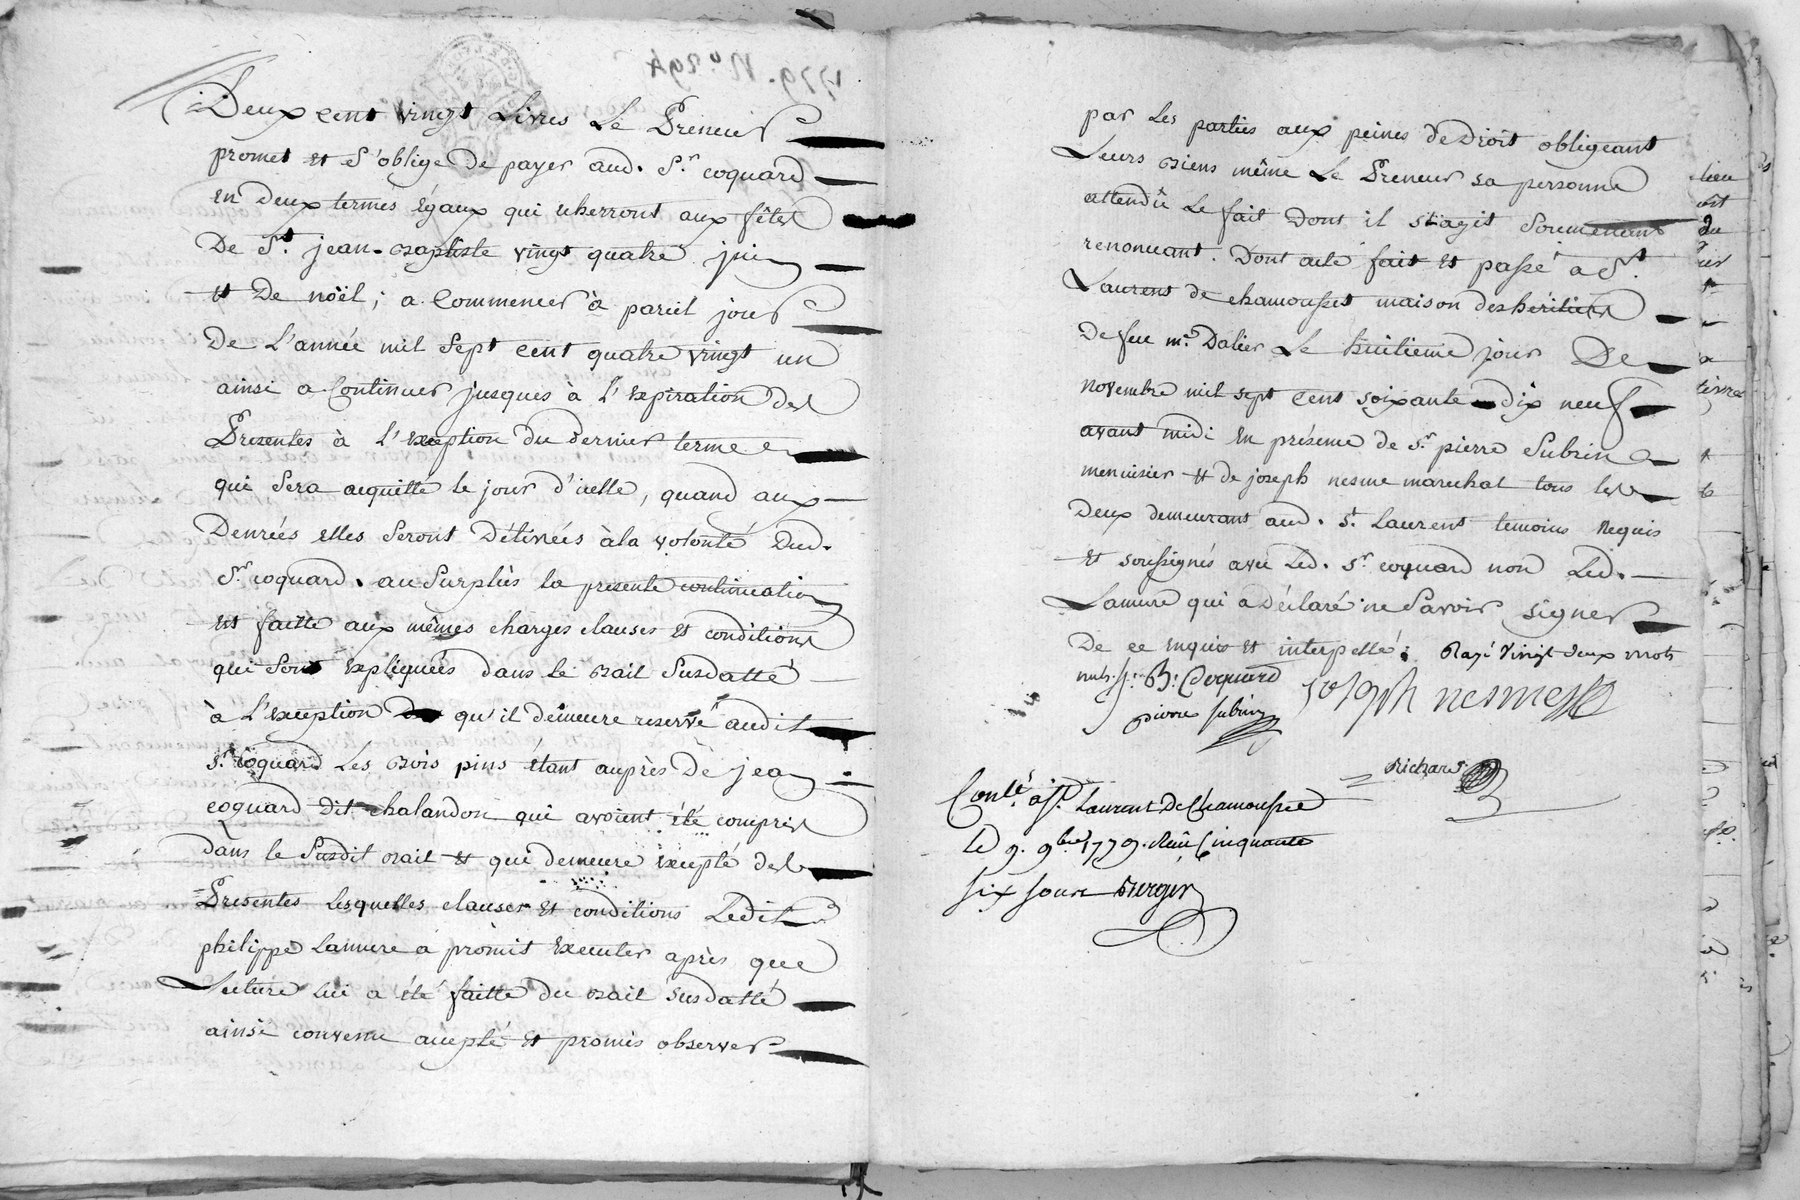 Deux cent vingt Livres Le Preneur
promet et s'oblige De payer aud. Sr. coquard
en Deux termes Egaux qui echerront aux fêtes
De St. jean-Baptiste vingt quatre juin
et De noël; a Commencer à pareil jour
De L'année mil sept cent quatre vingt un
ainsi a Continuer jusques à L'expiration des
Presentes à L'exception du dernier terme
qui sera acquitté le jour d'icelle, quand aux
Denrées elles seront Délivrées à la volonté Dud.
Sr. coquard. au surplus la presente continuation
est faitte aux mêmes charges clauses et conditions
qui sont expliquées dans le Bail susdatté
à L'exception qu'il demeure reservé audit
Sr. Coquard Les Bois pins étant auprès De jean
coquard dit chalandon qui avoient été compris
dans le susdit Bail et qui demeure excepté des
Presentes Lesquelles clauses et conditions Ledit
philippe Lamure a promit executer après que
Lecture lui a été faitte du Bail susdatté
ainsi convenu accepté et promis observer
par Les parties aux peines de Droit obligeant
Leurs Biens même Le Preneur sa personne
attendû Le fait Dont il s'agit Soumettant
renonçant. Dont acte fait et passé a St.
Laurent de chamousset maison des héritiers
De feu me. Dalier Le huitieme jour De
novembre mil sept cent soixante dix neuf
avant midi en présence de Sr. pierre Subrin
menuisier et de joseph nesme marechal tous les
Deux demeurans aud. St. Laurent temoins Requis
et soussignés avec Led. Sr. coquard non Led.
Lamure qui a Déclaré ne Savoir signer
De ce enquis et interpellé; Rayé vingt deux mots
nuls. Coquard
joseph nesme
pierre subrin
Richard
Conlé. a St. Laurent De Chamousset
Le 9. 9bre 1779. Reçu Cinquante
six sous Berger
1779. No. 294